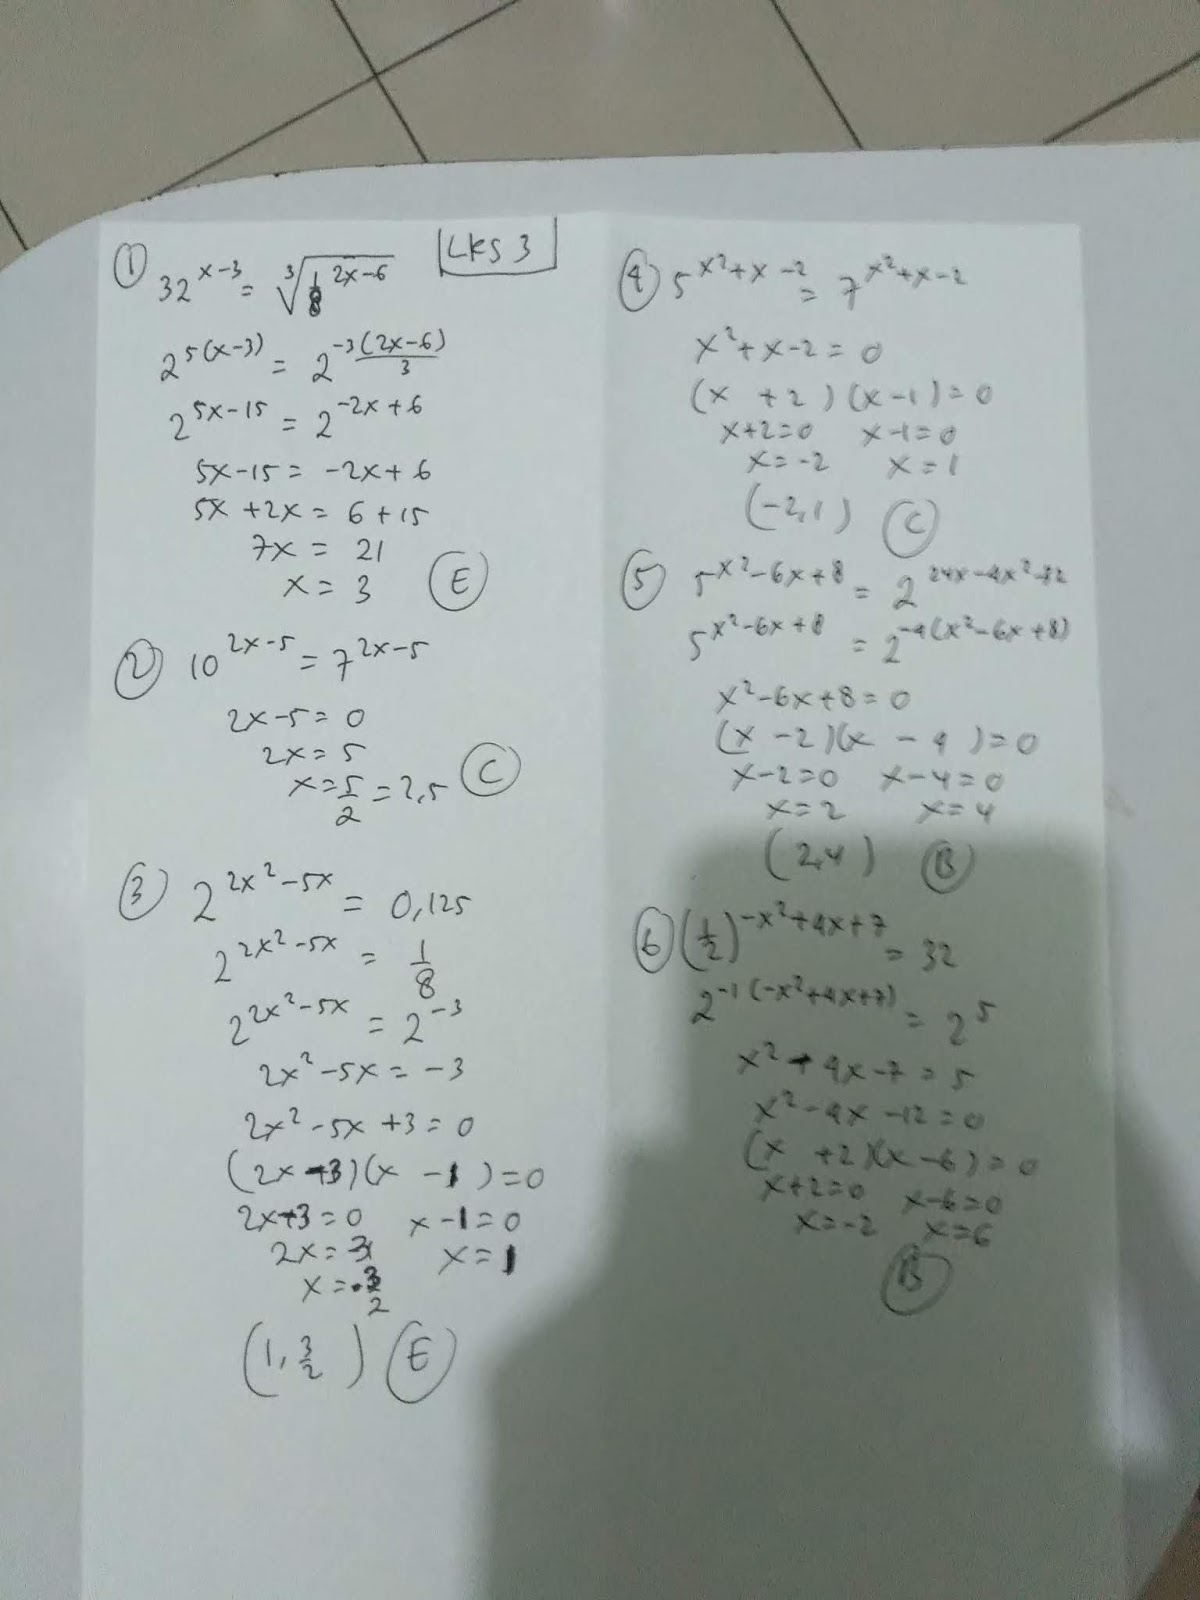 LKS 3
① 32^(x-3) = ∛(1/8^(2x-6))
2^(5(x-3)) = 2^(-3(2x-6)/3)
2^(5x-15) = 2^(-2x+6)
5x-15 = -2x+6
5x+2x = 6+15
7x = 21
x = 3 Ⓔ
② 10^(2x-5) = 7^(2x-5)
2x-5 = 0
2x = 5
x = 5/2 = 2,5 Ⓒ
③ 2^(2x²-5x) = 0,125
2^(2x²-5x) = 1/8
2^(2x²-5x) = 2^(-3)
2x²-5x = -3
2x²-5x+3 = 0
(2x-3)(x-1) = 0
2x-3=0 x-1=0
2x=3 x=1
x=3/2
(1, 3/2) Ⓔ
④ 5^(x²+x-2) = 7^(x²+x-2)
x²+x-2 = 0
(x+2)(x-1)=0
x+2=0 x-1=0
x=-2 x=1
(-2,1) Ⓒ
⑤ 5^(x²-6x+8) = 2^(24x-4x²-32)
5^(x²-6x+8) = 2^(-4(x²-6x+8))
x²-6x+8=0
(x-2)(x-4)=0
x-2=0 x-4=0
x=2 x=4
(2,4) Ⓑ
⑥ (1/2)^(-x²+4x+7) = 32
2^(-1(-x²+4x+7)) = 2^5
x²-4x-7=5
x²-4x-12=0
(x+2)(x-6)=0
x+2=0 x-6=0
x=-2 x=6
Ⓑ